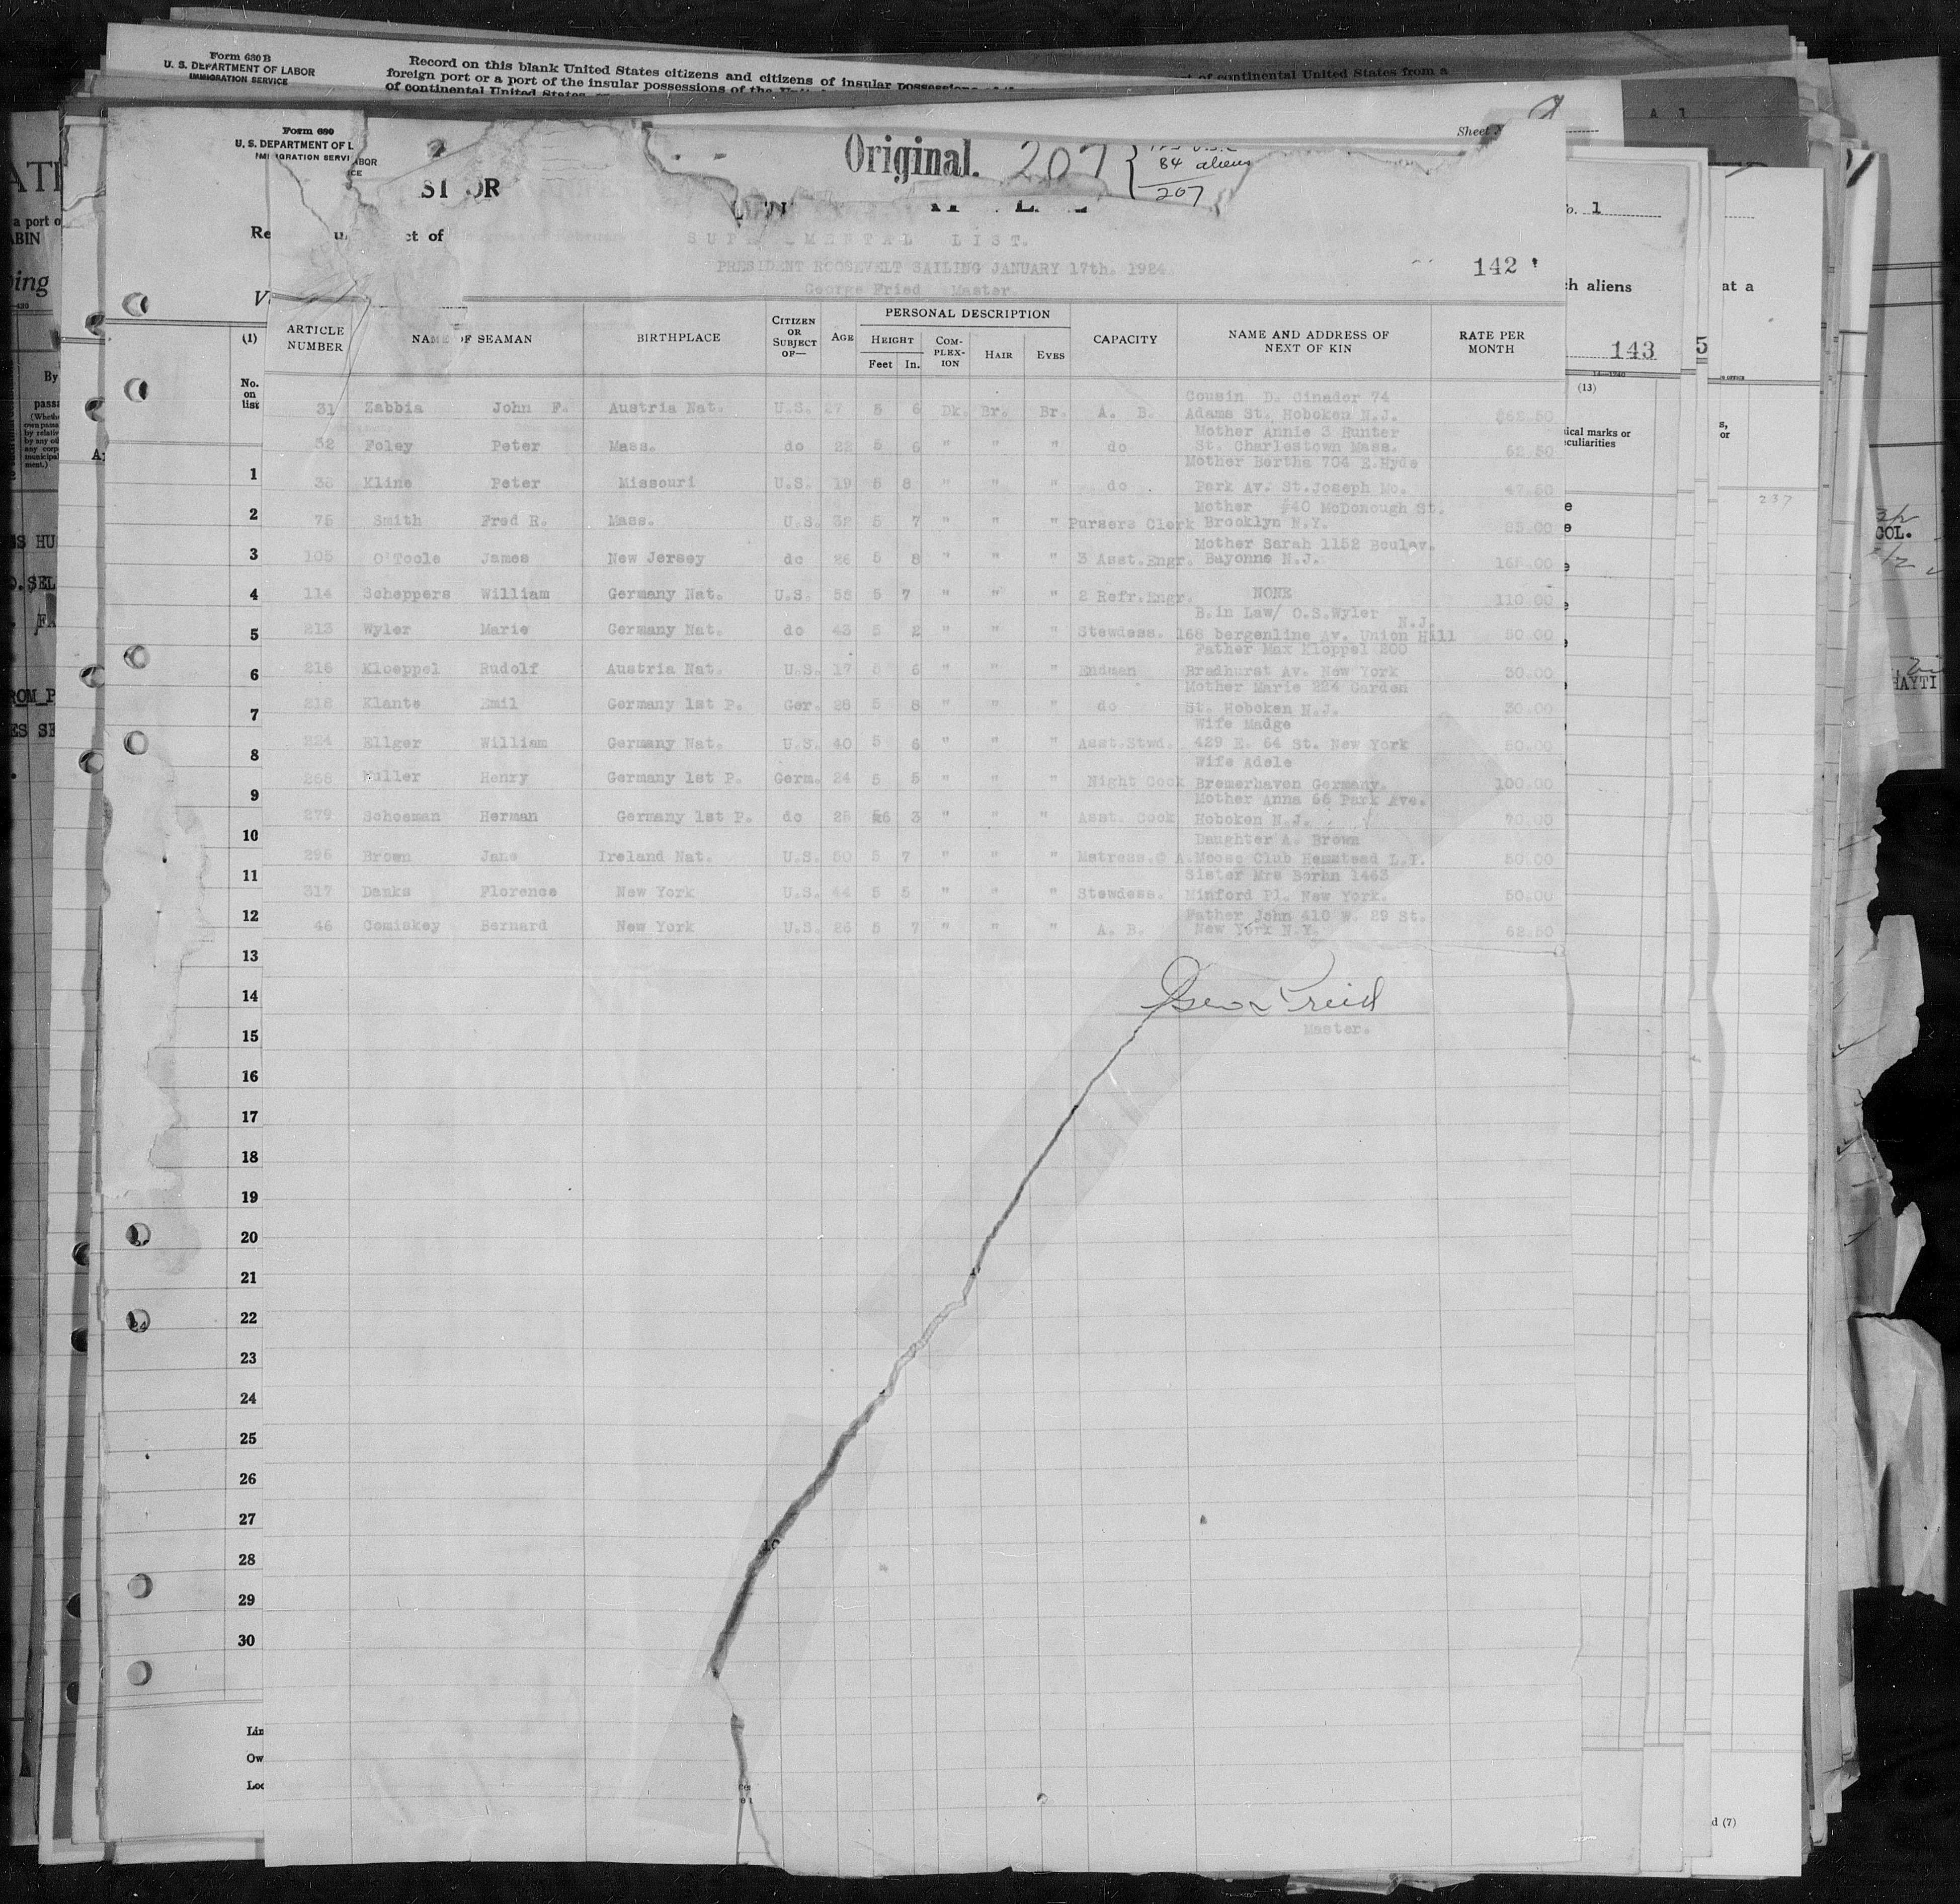 Form 630 B
U. S. DEPARTMENT OF LABOR
IMMIGRATION SERVICE
Record on this blank United States citizens and citizens of insular possessions
of continental United States from a
foreign port or a port of the insular possessions of the
of continental United States
Form 680
U. S. DEPARTMENT OF L
IMMIGRATION SERVI
ABOR
CE
Original. 207
84 aliens
207
Sheet
ST OR
ct of
SUPPLEMENTAL LIST.
PRESIDENT ROOSEVELT SAILING JANUARY 17th. 1924
George Fried Master.
142
o. 1
ch aliens
at a
143
(1)
(13)
No. on list
ical marks or
culiarities
ARTICLE NUMBER NAME OF SEAMAN BIRTHPLACE CITIZEN OR SUBJECT OF— AGE PERSONAL DESCRIPTION HEIGHT Feet In. COM-PLEX-ION HAIR EYES CAPACITY NAME AND ADDRESS OF NEXT OF KIN RATE PER MONTH
Cousin D. Cinader 74
31 Zabbia John F. Austria Nat. U.S. 27 5 6 Dk. Br. Br. A. B. Adams St. Hoboken N.J. $62.50
Mother Annie 3 Hunter
32 Foley Peter Mass. do 22 5 6 " " " do St. Charlestown Mass. 62.50
Mother Bertha 704 E.Hyde
38 Kline Peter Missouri U.S. 19 5 8 " " " do . Park Av. St.Joseph Mo. 47.50
Mother #40 McDonough St.
75 Smith Fred R. Mass. U.S. 32 5 7 " " " Pursers Clerk Brooklyn N.Y. 85.00
Mother Sarah 1152 Boulev.
105 O'Toole James New Jersey do 26 5 8 " " " 3 Asst.Engr. Bayonne N.J. 165.00
114 Scheppers William Germany Nat. U.S. 58 5 7 " " " 2 Refr.Engr. NONE 110.00
B.in Law/ O.S.Wyler N.J.
213 Wyler Marie Germany Nat. do 43 5 2 " " " Stewdess. 168 bergenline Av. Union Hill 50.00
Father Max Kloppel 200
216 Kloeppel Rudolf Austria Nat. U.S. 17 5 6 " " " Endman Bradhurst Av. New York 30.00
Mother Marie 224 Garden
218 Klante Emil Germany 1st P. Ger. 28 5 8 " " " do St. Hoboken N.J. 30.00
Wife Madge
224 Ellger William Germany Nat. U.S. 40 5 6 " " " Asst.Stwd. 429 E. 64 St. New York 50.00
Wife Adele
268 Muller Henry Germany 1st P. Germ. 24 5 5 " " " Night Cook Bremerhaven Germany. 100.00
Mother Anna 66 Park Ave.
279 Schoeman Herman Germany 1st P. do 25 3 " " " Asst. Cook Hoboken N.J. 70.00
Daughter A. Brown
295 Brown Jane Ireland Nat. U.S. 50 5 7 " " " Matress. A.Moose Club Hemstead L.I. 50.00
Sister Mrs Borhn 1463
317 Danks Florence New York U.S. 44 5 5 " " " Stewdess. Minford Pl. New York. 50.00
Father John 410 W. 29 St.
46 Comiskey Bernard New York U.S. 26 5 7 " " " A. B. New York N.Y. 62.50
Geo Fried
Master.
1
2
3
4
5
6
7
8
9
10
11
12
13
14
15
16
17
18
19
20
21
22
23
24
25
26
27
28
29
30
Lin
Ow
Loc
237
COL.
HAYTI
d (7)